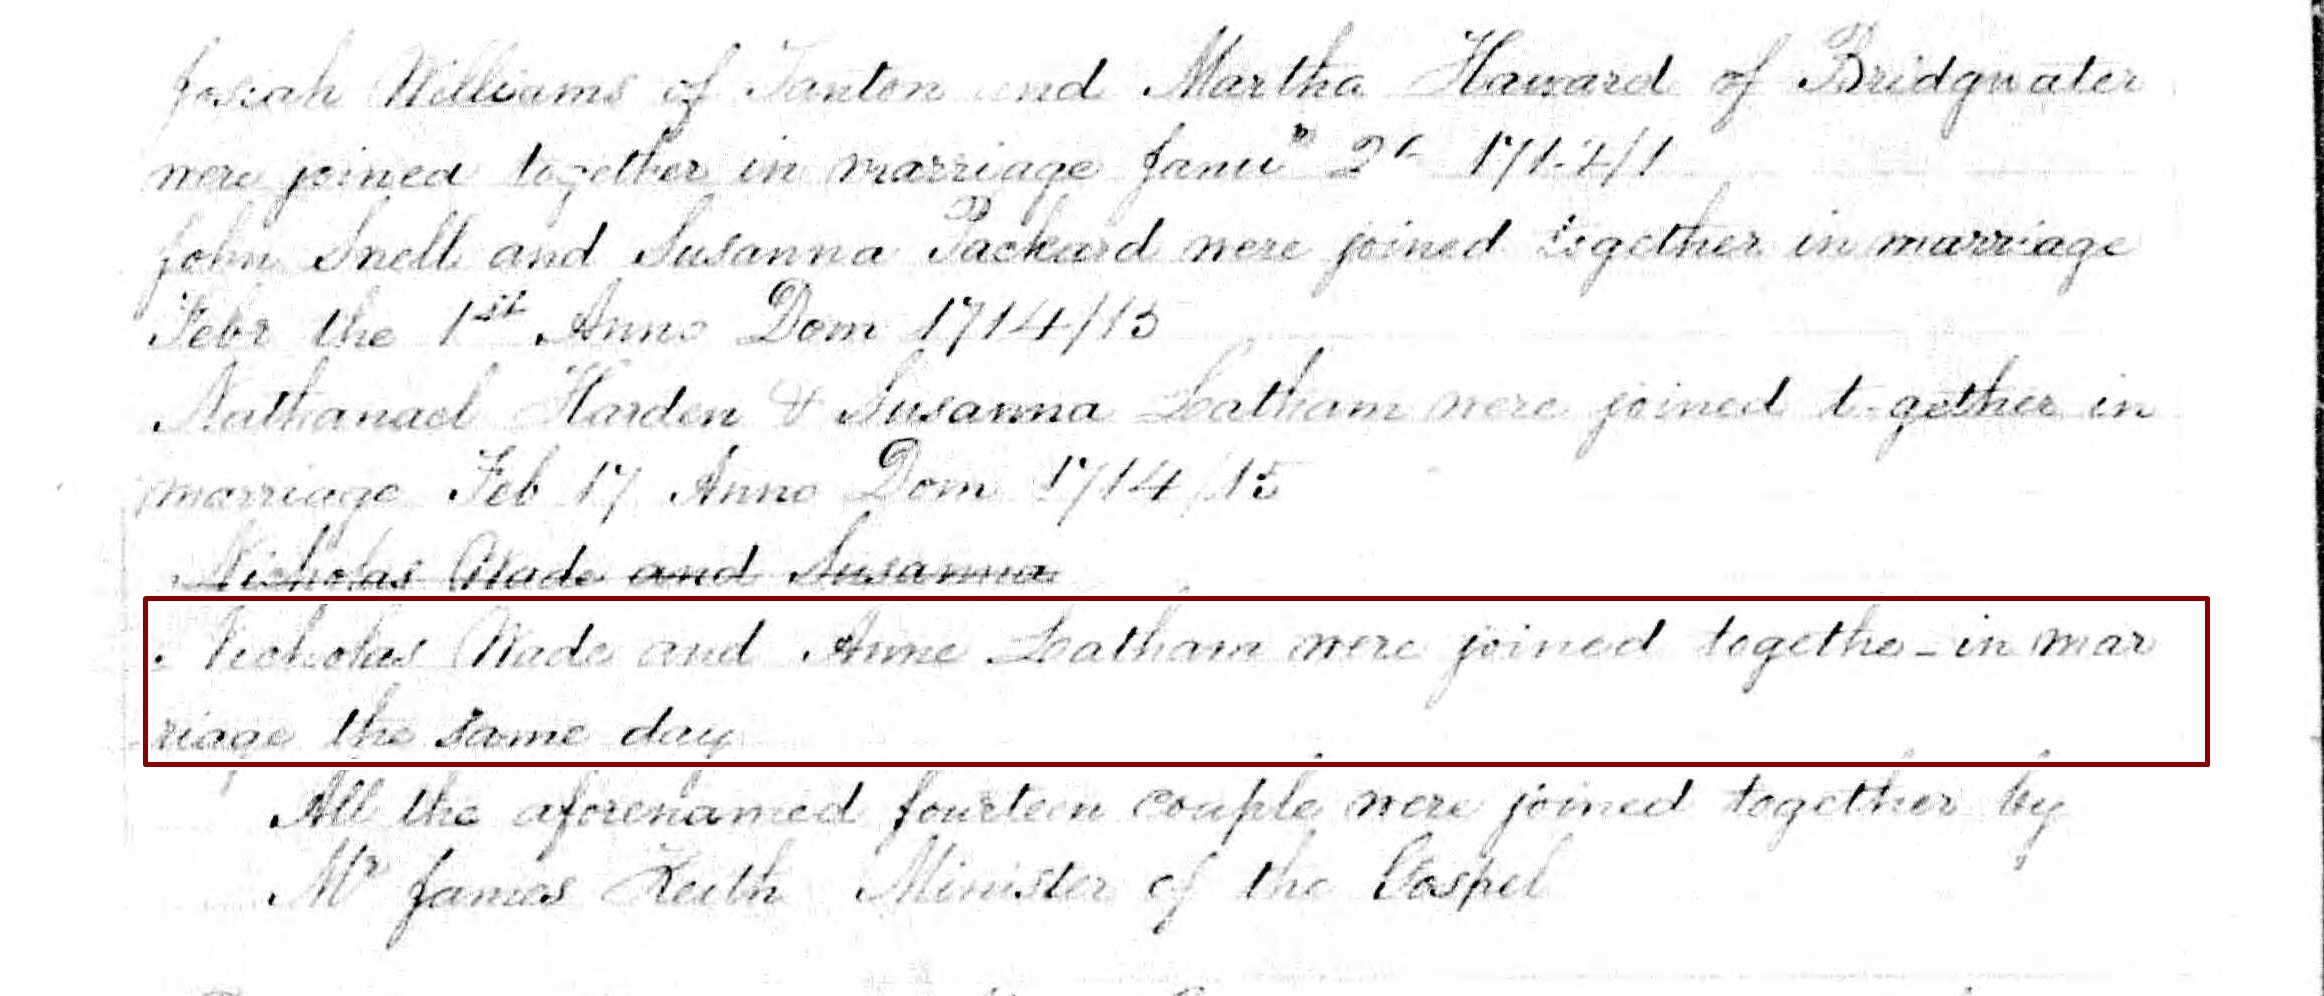 Josiah Williams of Tanton and Martha Haward of Bridgwater
were joined together in marriage Janu
John Snell and Susanna Packard were joined together in marriage
Febr the 1st Anno Dom 1714/15
Nathanael Harden & Susanna Latham were joined together in
marriage Feb 17 Anno Dom 1714/15
Nicholas Wade and Susanna
Nicholas Wade and Anne Latham were joined together in mar
riage the same day
All the aforenamed fourteen couple were joined together by
Mr James Keith Minister of the Gospel